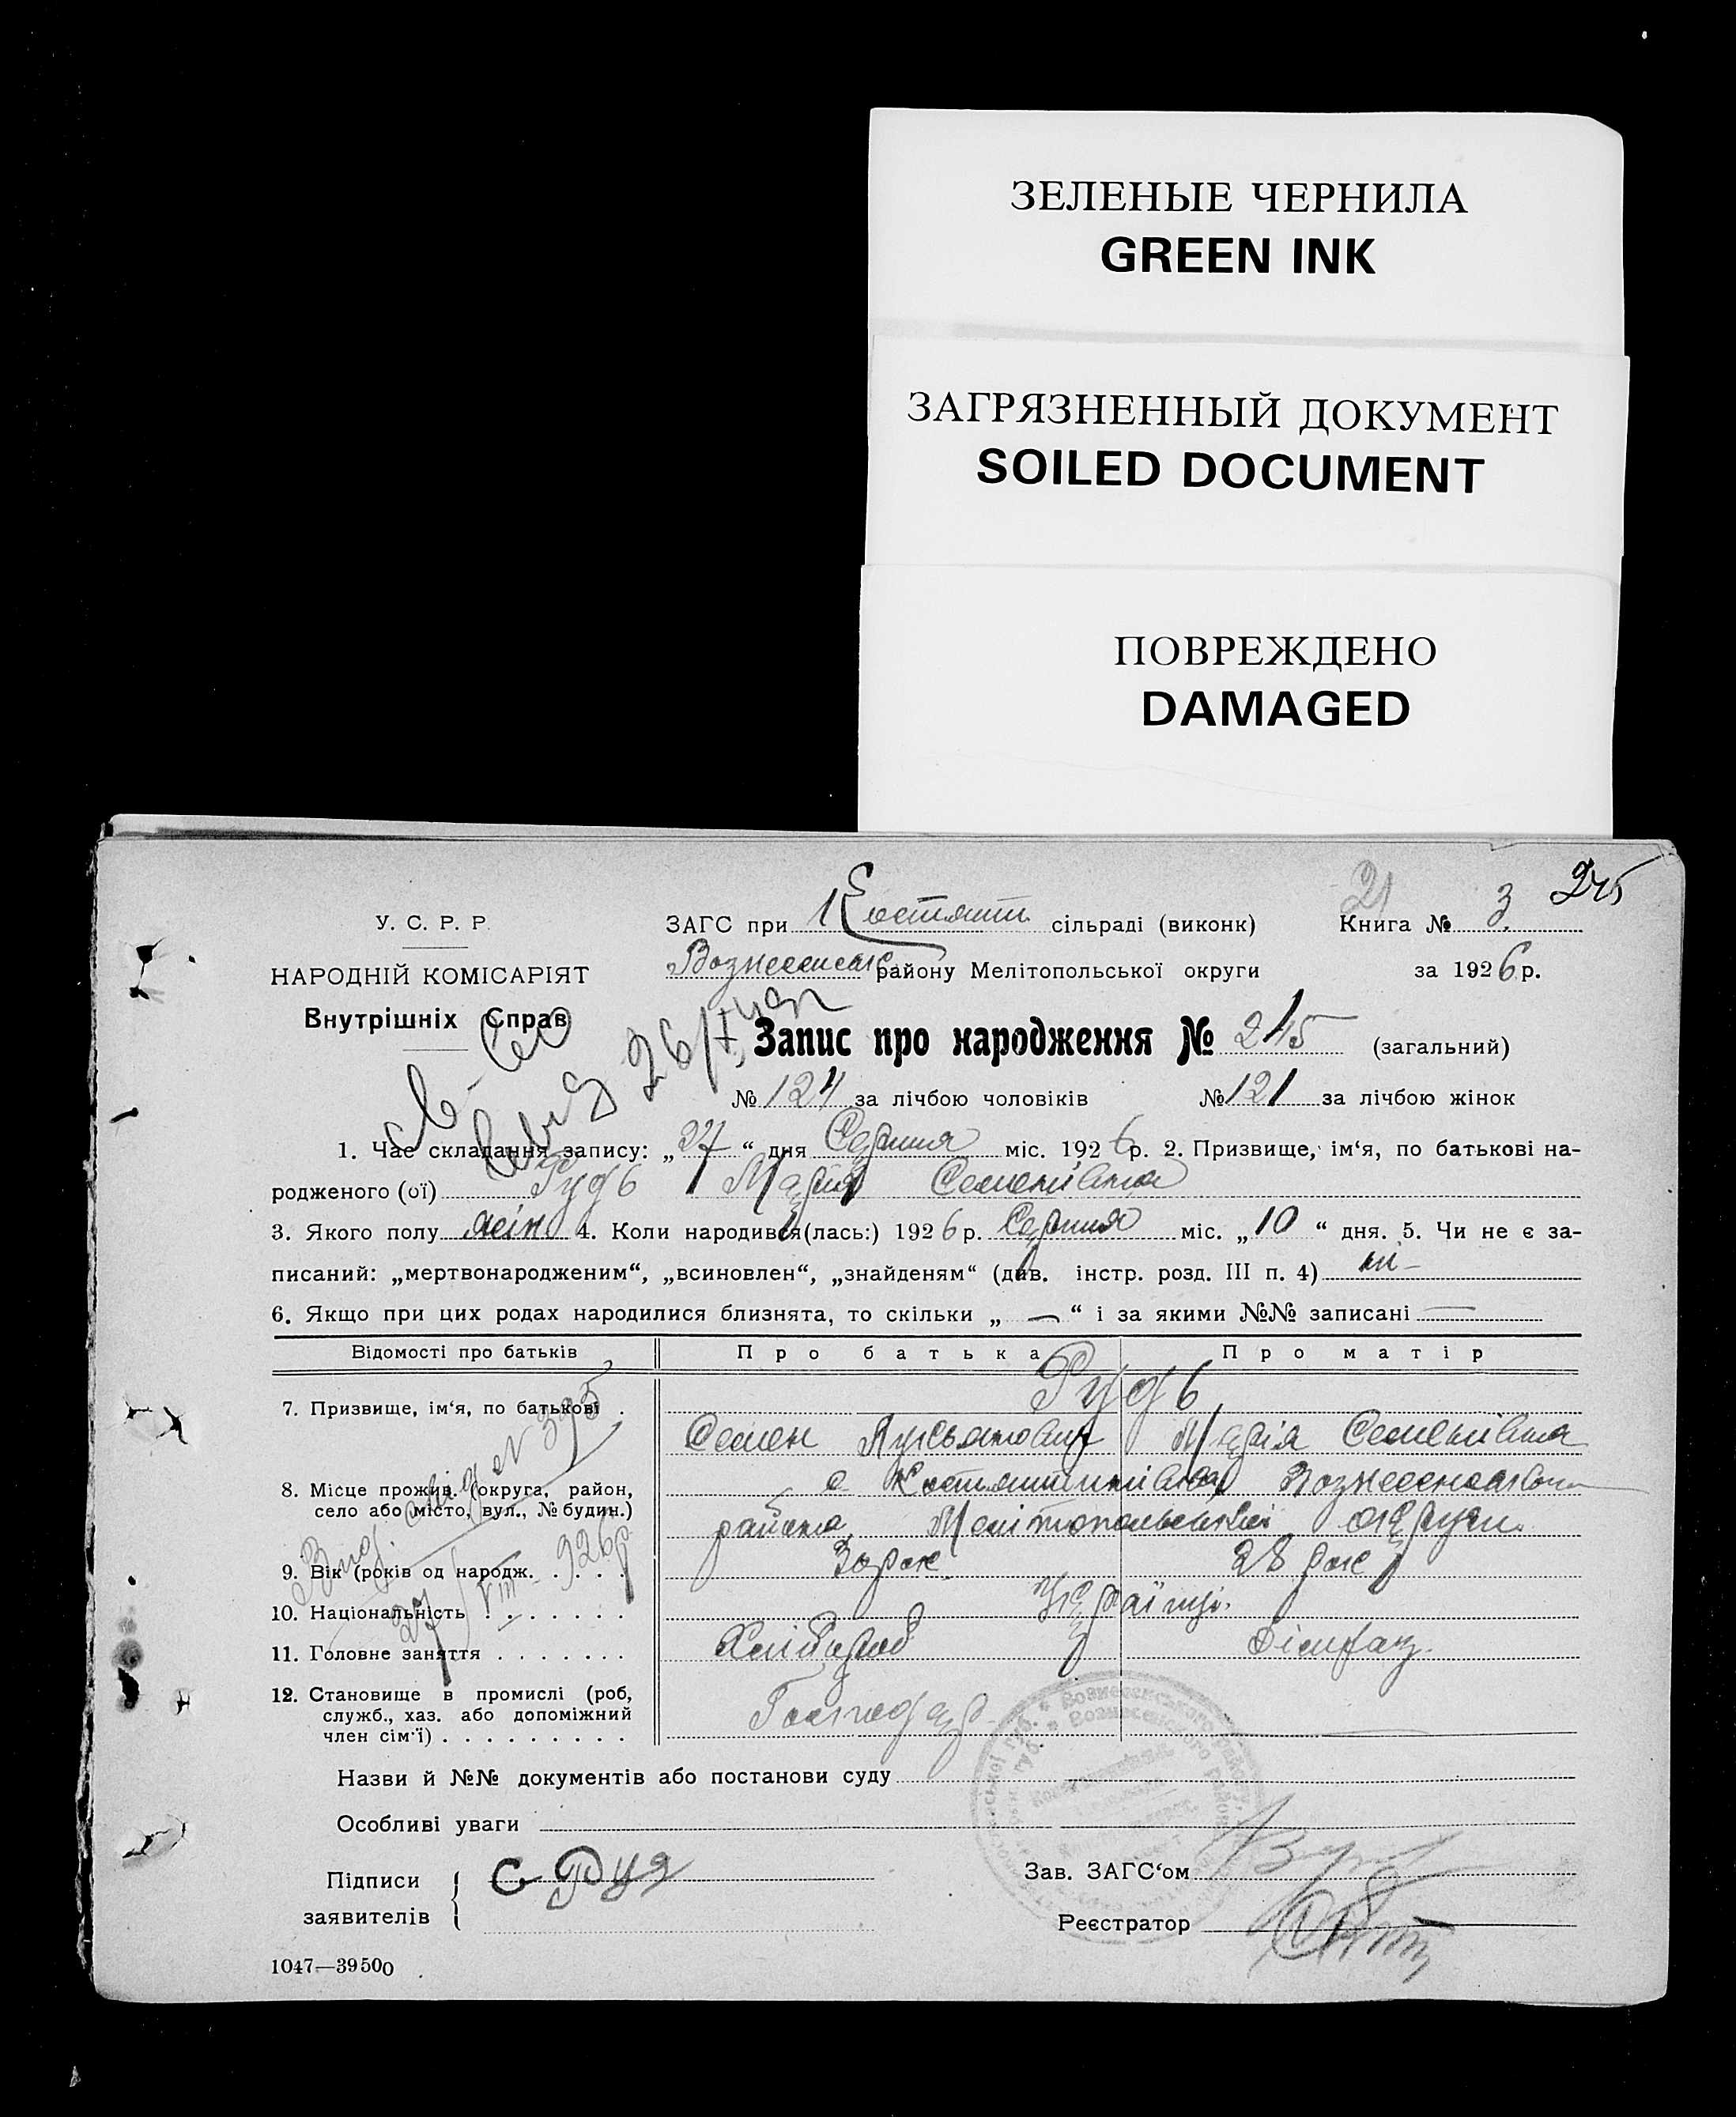 ЗЕЛЕНЫЕ ЧЕРНИЛА
GREEN INK
ЗАГРЯЗНЕННЫЙ ДОКУМЕНТ
SOILED DOCUMENT
ПОВРЕЖДЕНО
DAMAGED
21 245
У. С. Р. Р.
НАРОДНІЙ КОМІСАРІЯТ
Внутрішніх Справ
ЗАГС при Костянт. сільраді (виконк) Книга № 3.
Вознесенськ району Мелітопольської округи за 1926 р.
Запис про народження № 245 (загальний)
№ 124 за лічбою чоловіків № 121 за лічбою жінок
1. Час складання запису: „27“ дня Серпня міс. 1926 р. 2. Призвище, ім‘я, по батькові на-
родженого (ої) Рудь Марія Семенівна
3. Якого полу жін 4. Коли народився(лась:) 1926 р. Серпня міс. „10“ дня. 5. Чи не є за-
писаний: „мертвонародженим“, „всиновлен“, „знайденям“ (див. інстр. розд. III п. 4) ні –
6. Якщо при цих родах народилися близнята, то скільки „ — “ і за якими №№ записані —
Відомості про батьків Про батька Про матір
7. Призвище, ім‘я, по батькові . Рудь
Семен Лукьянович Марія Семенівна
8. Місце прожив. (округа, район,
село або місто, вул., № будин.)
с Костянтинівка Вознесенського
району, Мелітопольської округи.
9. Вік (років од народж. . . . . 28 рок
10. Національність . . . . . . . Українці.
11. Головне заняття . . . . . . . Хлібороб
12. Становище в промислі (роб,
служб., хаз. або допоміжний
член сім‘ї) . . . . . . . . . Господар
Назви й №№ документів або постанови суду
Особливі уваги
Підписи
заявителів
С Рудь
Зав. ЗАГС‘ом
Реєстратор
1047—39500